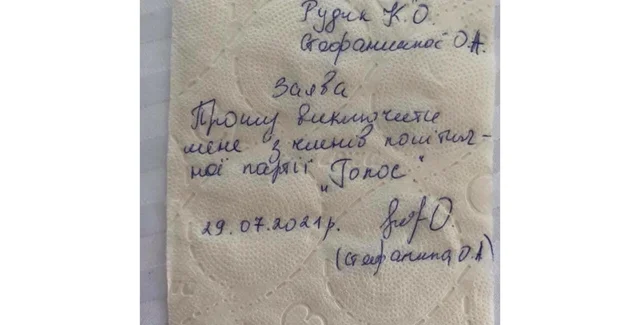 Рудик К.О.
Стефанишиної О.А.
Заява
Прошу виключити
мене з членів політич-
ної партії
"Голос"
29.07.2021р.
(Стефанишина О.А)